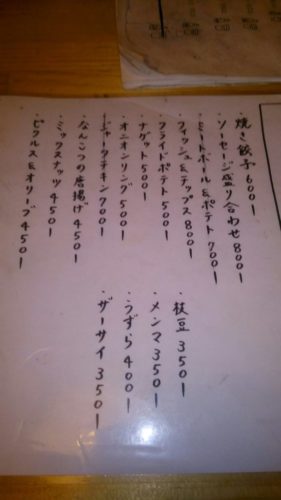 ・焼き餃子600-
・ソーセージ盛り合わせ800-
・ミートボール&ポテト700-
・フィッシュ&チップス800-
・フライドポテト500-
・ナゲット500-
・オニオンリング500-
・ジャークチキン700-
・なんこつの唐揚げ450-
・ミックスナッツ450-
・ピクルス&オリーブ450-
・枝豆350-
・メンマ350-
・うずら400-
・ザーサイ350-